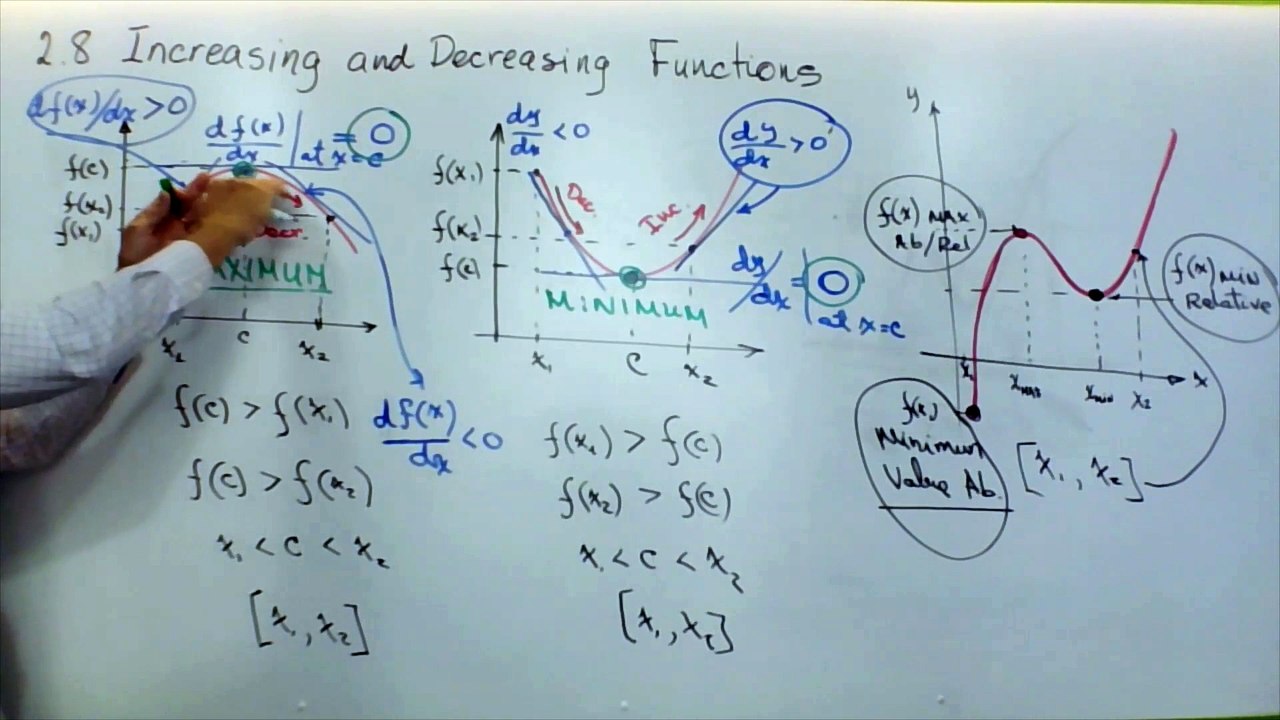 2.8 Increasing and Decreasing Functions
df(x)/dx > 0
df(x)/dx | at x=c = 0
f(c)
f(x₂)
f(x₁)
Decr.
MAXIMUM
x₁ c x₂
f(c) > f(x₁)
df(x)/dx < 0
f(c) > f(x₂)
x₁ < c < x₂
[x₁, x₂]
dy/dx < 0
dy/dx > 0
f(x₁)
f(x₂)
f(c)
Dec.
Inc.
MINIMUM
dy/dx | at x=c = 0
x₁ c x₂
f(x₁) > f(c)
f(x₂) > f(c)
x₁ < c < x₂
[x₁, x₂]
y
f(x) MAX
Ab/Rel
f(x) MIN
Relative
x₁ xMAX xMIN x₂ x
f(x₁)
Minimum
Value Ab.
[x₁, x₂]